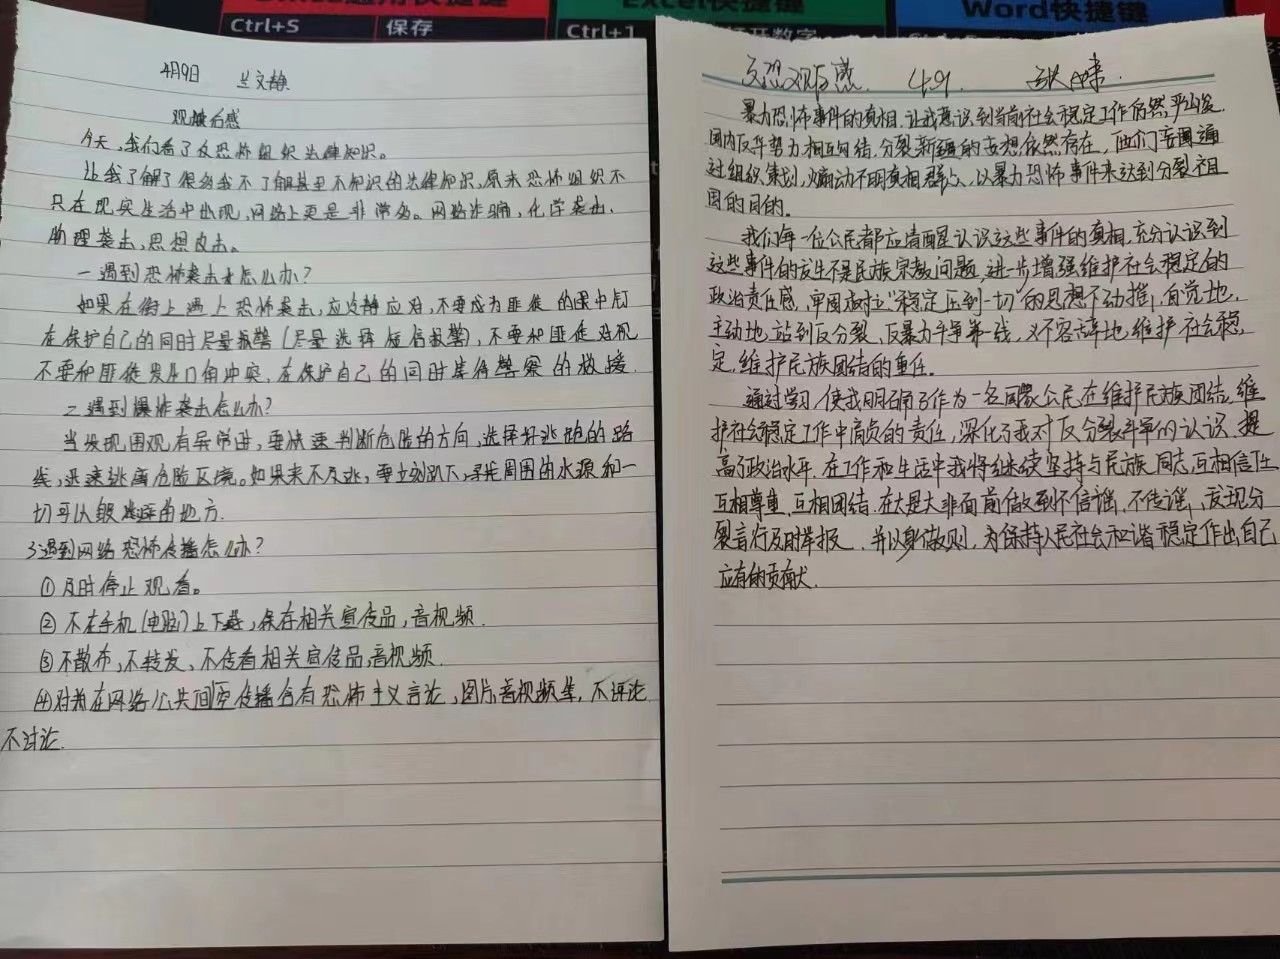 Ctrl+S 保存
Ctrl+1
Excel快捷键
Word快捷键
4月9日 兰文静
观后感
今天,我们看了反恐怖组织法律知识。
让我了解了很多我不了解甚至不知识的法律知识,原来恐怖组织不
只在现实生活中出现,网络上更是非常多。网络诈骗,化学袭击,
物理袭击,思想攻击。
一遇到恐怖袭击怎么办?
如果在街上遇上恐怖袭击,应冷静应对,不要成为匪徒的眼中钉
在保护自己的同时尽量报警(尽量选择短信报警),不要和匪徒对视
不要和匪徒发生口角冲突,在保护自己的同时等待警察的救援
二遇到爆炸袭击怎么办?
当发现围观有异常进,要快速判断危险的方向,选择好逃跑的路
线,迅速逃离危险区境。如果来不及逃,要立刻趴下,寻找周围的水源和一
切可以躲的地方.
3遇到网络恐怖传播怎么办?
①及时停止观看。
②不在手机(电脑)上下载,保存相关宣传品,音视频.
③不散布,不转发,不传看相关宣传品,音视频.
④对于在网络公共间空传播含有恐怖主义言论,图片,音视频等,不评论
不讨论.
反恐观后感. 4.9. 张
暴力恐怖事件的真相,让我意识到当前社会稳定工作仍然严峻.
国内反华势力相互勾结,分裂新疆的妄想依然存在,他们妄图通
过组织策划,煽动不明真相群众,以暴力恐怖事件来达到分裂祖
国的目的.
我们每一位公民都应清醒认识这些事件的真相,充分认识到
这些事件的发生不是民族宗教问题,进一步增强维护社会稳定的
政治责任感,牢固树立“稳定压到一切”的思想不动摇,自觉地,
主动地站到反分裂、反暴力斗争第一线,义不容辞地维护社会稳
定,维护民族团结的重任.
通过学习,使我明确了作为一名国家公民在维护民族团结,维
护社会稳定工作中肩负的责任,深化了我对反分裂斗争的认识,提
高了政治水平.在工作和生活中我将继续坚持与民族同志互相信任
互相尊重,互相团结.在大是大非面前做到不信谣,不传谣,发现分
裂言行及时举报,并以身做则,为保持人民社会和谐稳定作出自己
应有的贡献.